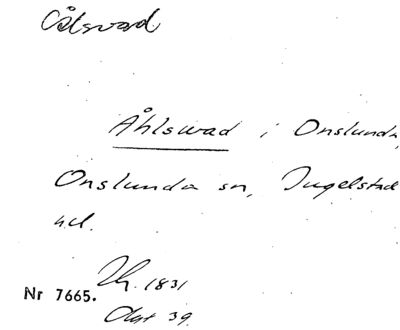 Ålsvad
Åhlswad i Onslunda,
Onslunda sn, Ingelstad
hd.
1831
Nr 7665.
39.